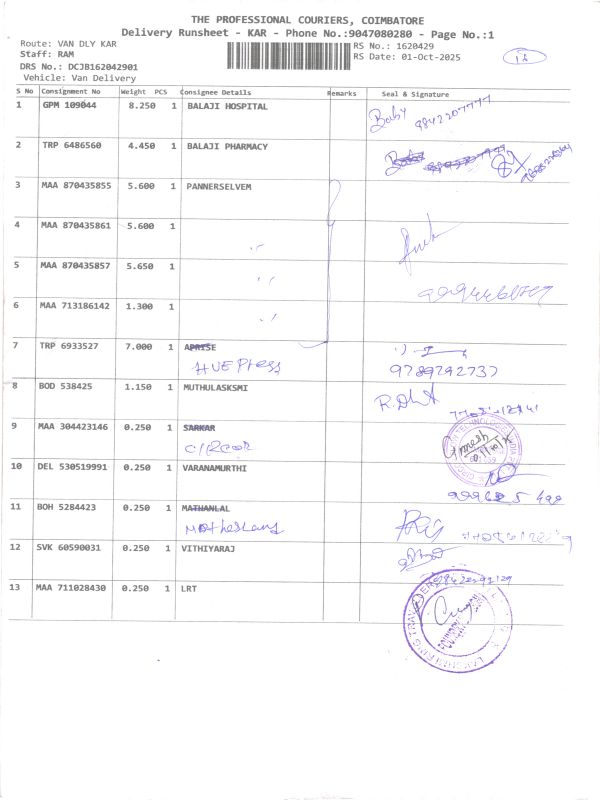 THE PROFESSIONAL COURIERS, COIMBATORE
Delivery Runsheet - KAR - Phone No.:9047080280 - Page No.:1
Route: VAN DLY KAR
RS No.: 1620429
Staff: RAM
RS Date: 01-Oct-2025
DRS No.: DCJB162042901
Vehicle: Van Delivery
S No Consignment No Weight PCS Consignee Details Remarks Seal & Signature
1 GPM 109044 8.250 1 BALAJI HOSPITAL Baby 9842207777
2 TRP 6486560 4.450 1 BALAJI PHARMACY
3 MAA 870435855 5.600 1 PANNERSELVEM
4 MAA 870435861 5.600 1 ,,
5 MAA 870435857 5.650 1 ,,
6 MAA 713186142 1.300 1 ,,
7 TRP 6933527 7.000 1 APRISE
HUE Press 9789292737
8 BOD 538425 1.150 1 MUTHULASKSMI
9 MAA 304423146 0.250 1 SARKAR
10 DEL 530519991 0.250 1 VARANAMURTHI
11 BOH 5284423 0.250 1 MATHANLAL
12 SVK 60590031 0.250 1 VITHIYARAJ
13 MAA 711028430 0.250 1 LRT